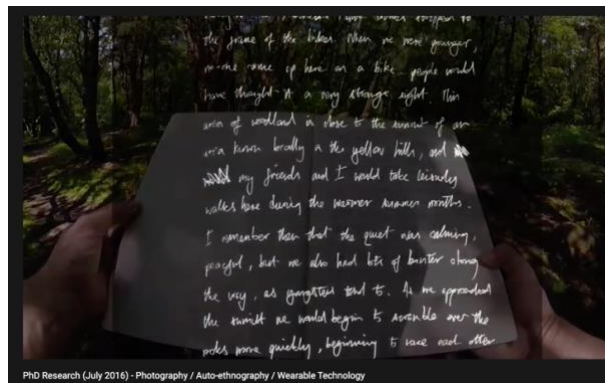 to
the frame of the bikes. When we were younger,
no-one came up here on a bike. people would
have thought it a very strange sight. This
area of woodland is close to the summit of an
area known locally as the yellow hills, and
my friends and I would take leisurely
walks here during the warmer summer months.
I remember then that the quiet was calming,
peaceful, but we also had bits of banter along
the way, as youngsters tend to. As we approached
the summit we would begin to scramble over the
rocks more quickly, beginning to race each other
PhD Research (July 2016) - Photography / Auto-ethnography / Wearable Technology